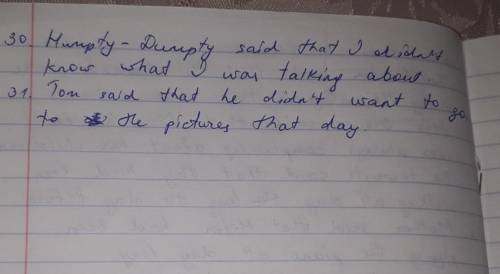 30. Humpty-Dumpty said that I didn't
know what I was talking about.
31. Tom said that he didn't want to go
to the pictures that day.